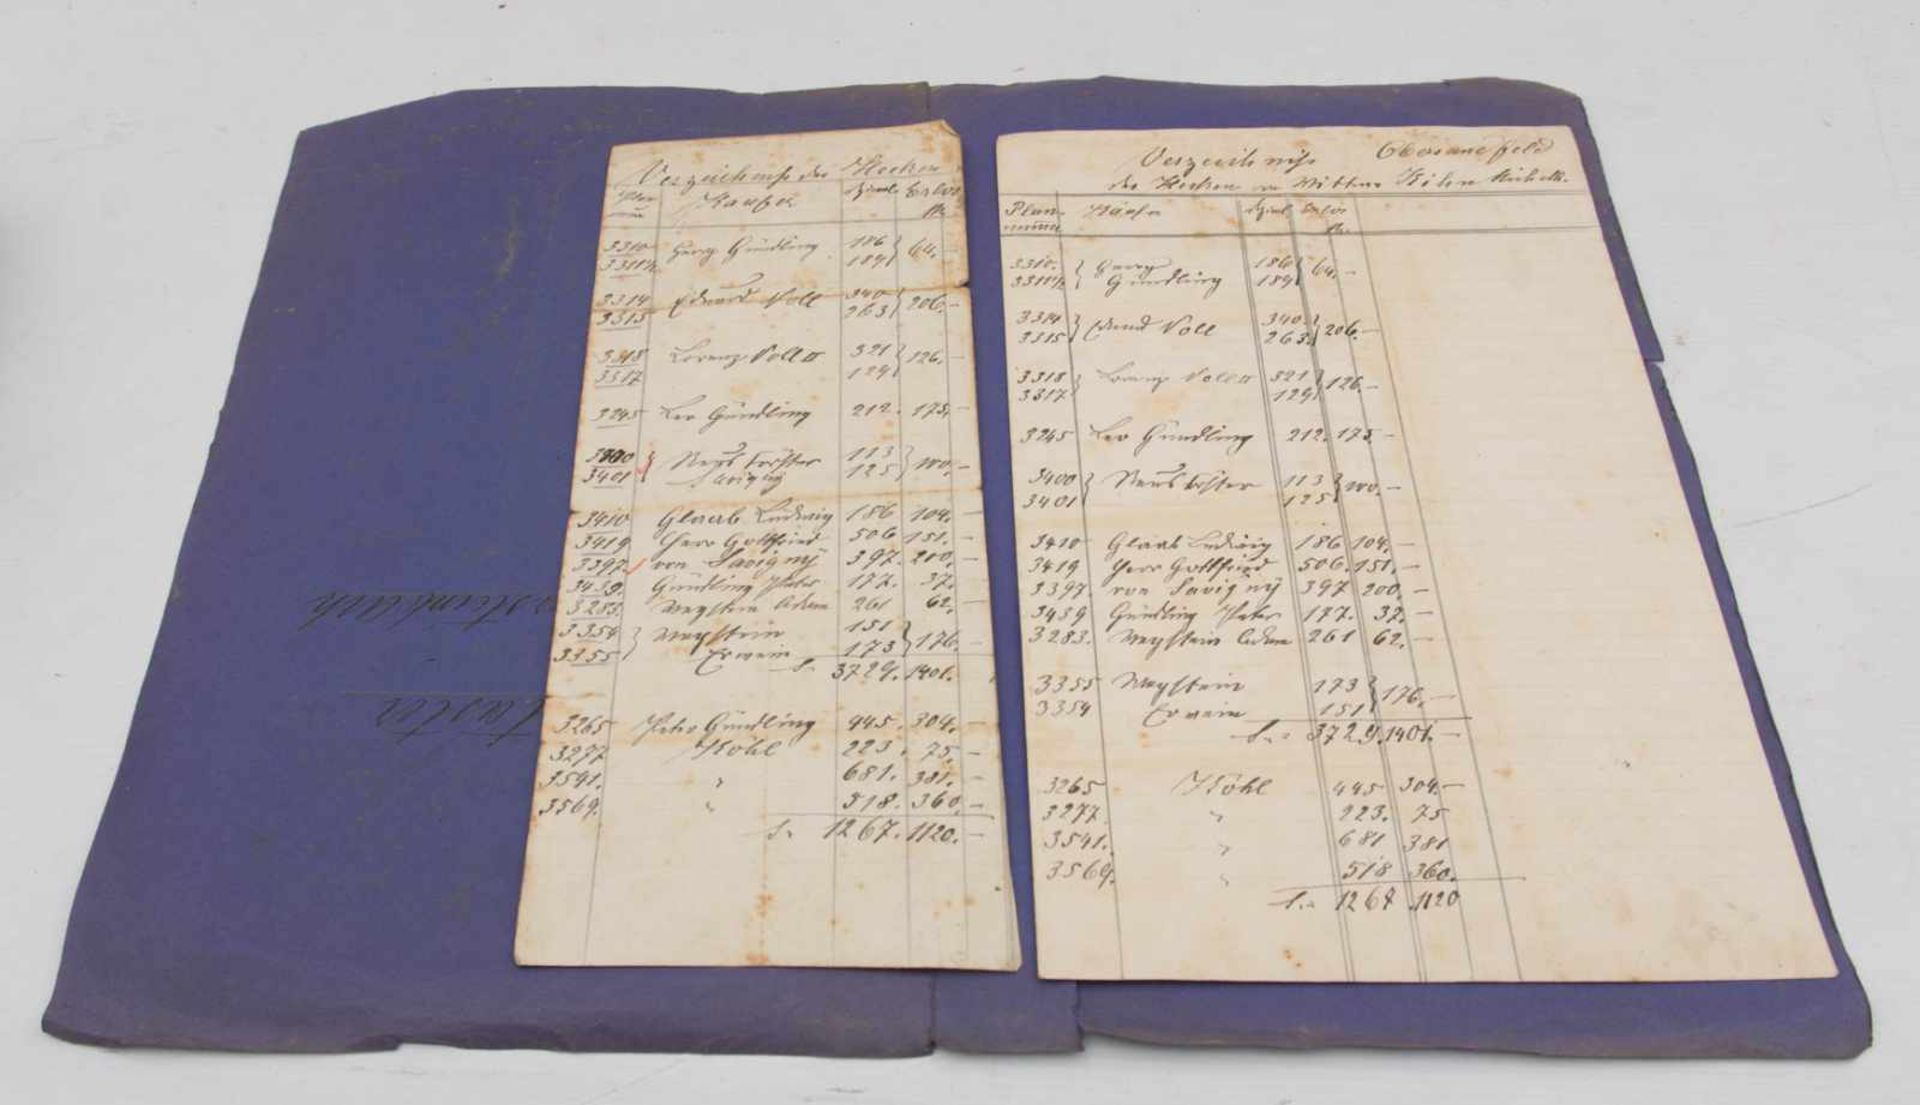 Verzeichniss der Hecken
Plan
num
Käufer
Dziml
Erlös
M.
3310
3311½
Georg Gündling
186
189
64.–
3314
3315
Eduard Voll
340
263
206.–
3318
3317
Lorenz Voll II
321
129
126.–
3245 Leo Gündling 212. 175.–
3400
3401
Förster
Savigny
113
125
100.–
3410 Glaab Ludwig 186 104.–
3419 Herr Gottfried 506 151.–
3397. von Savigny 397. 200.–
3439. Gündling Peter 177. 37.–
3283. Weÿstein Adam 261 62.–
3354
3355
Weÿstein
Erwein
151
173
176.–
S. 3729. 1401.
3265 Peter Gündling 445. 304.–
3277 Köhl 223. 75.–
3541. " 681. 381.–
3569. " 518. 360.–
S. 1267. 1120.–
Verzeichniss
der Hecken
Plan-
numm
Käufer
Dziml
Erlös
M.
3310.
3311½
Georg
Gündling
186
189
64.–
3314
3315
Eduard Voll
340.
263.
206.–
3318
3317
Lorenz Voll II
321
129
126.–
3245 Leo Gündling 212. 175.–
3400
3401
113
125
100.–
3410 Glaab Ludwig 186 104.–
3419 Herr Gottfried 506. 151.–
3397. von Savigny 397 200.–
3439 Gündling Peter 177. 37.–
3283. Weÿstein Adam 261 62.–
3355
3354
Weÿstein
Erwein
173
151
176.–
S. 3729. 1401.–
3265 Köhl 445 304.–
3277 " 223. 75
3541. " 681 381
3569. " 518 360.
S. 1267 .1120